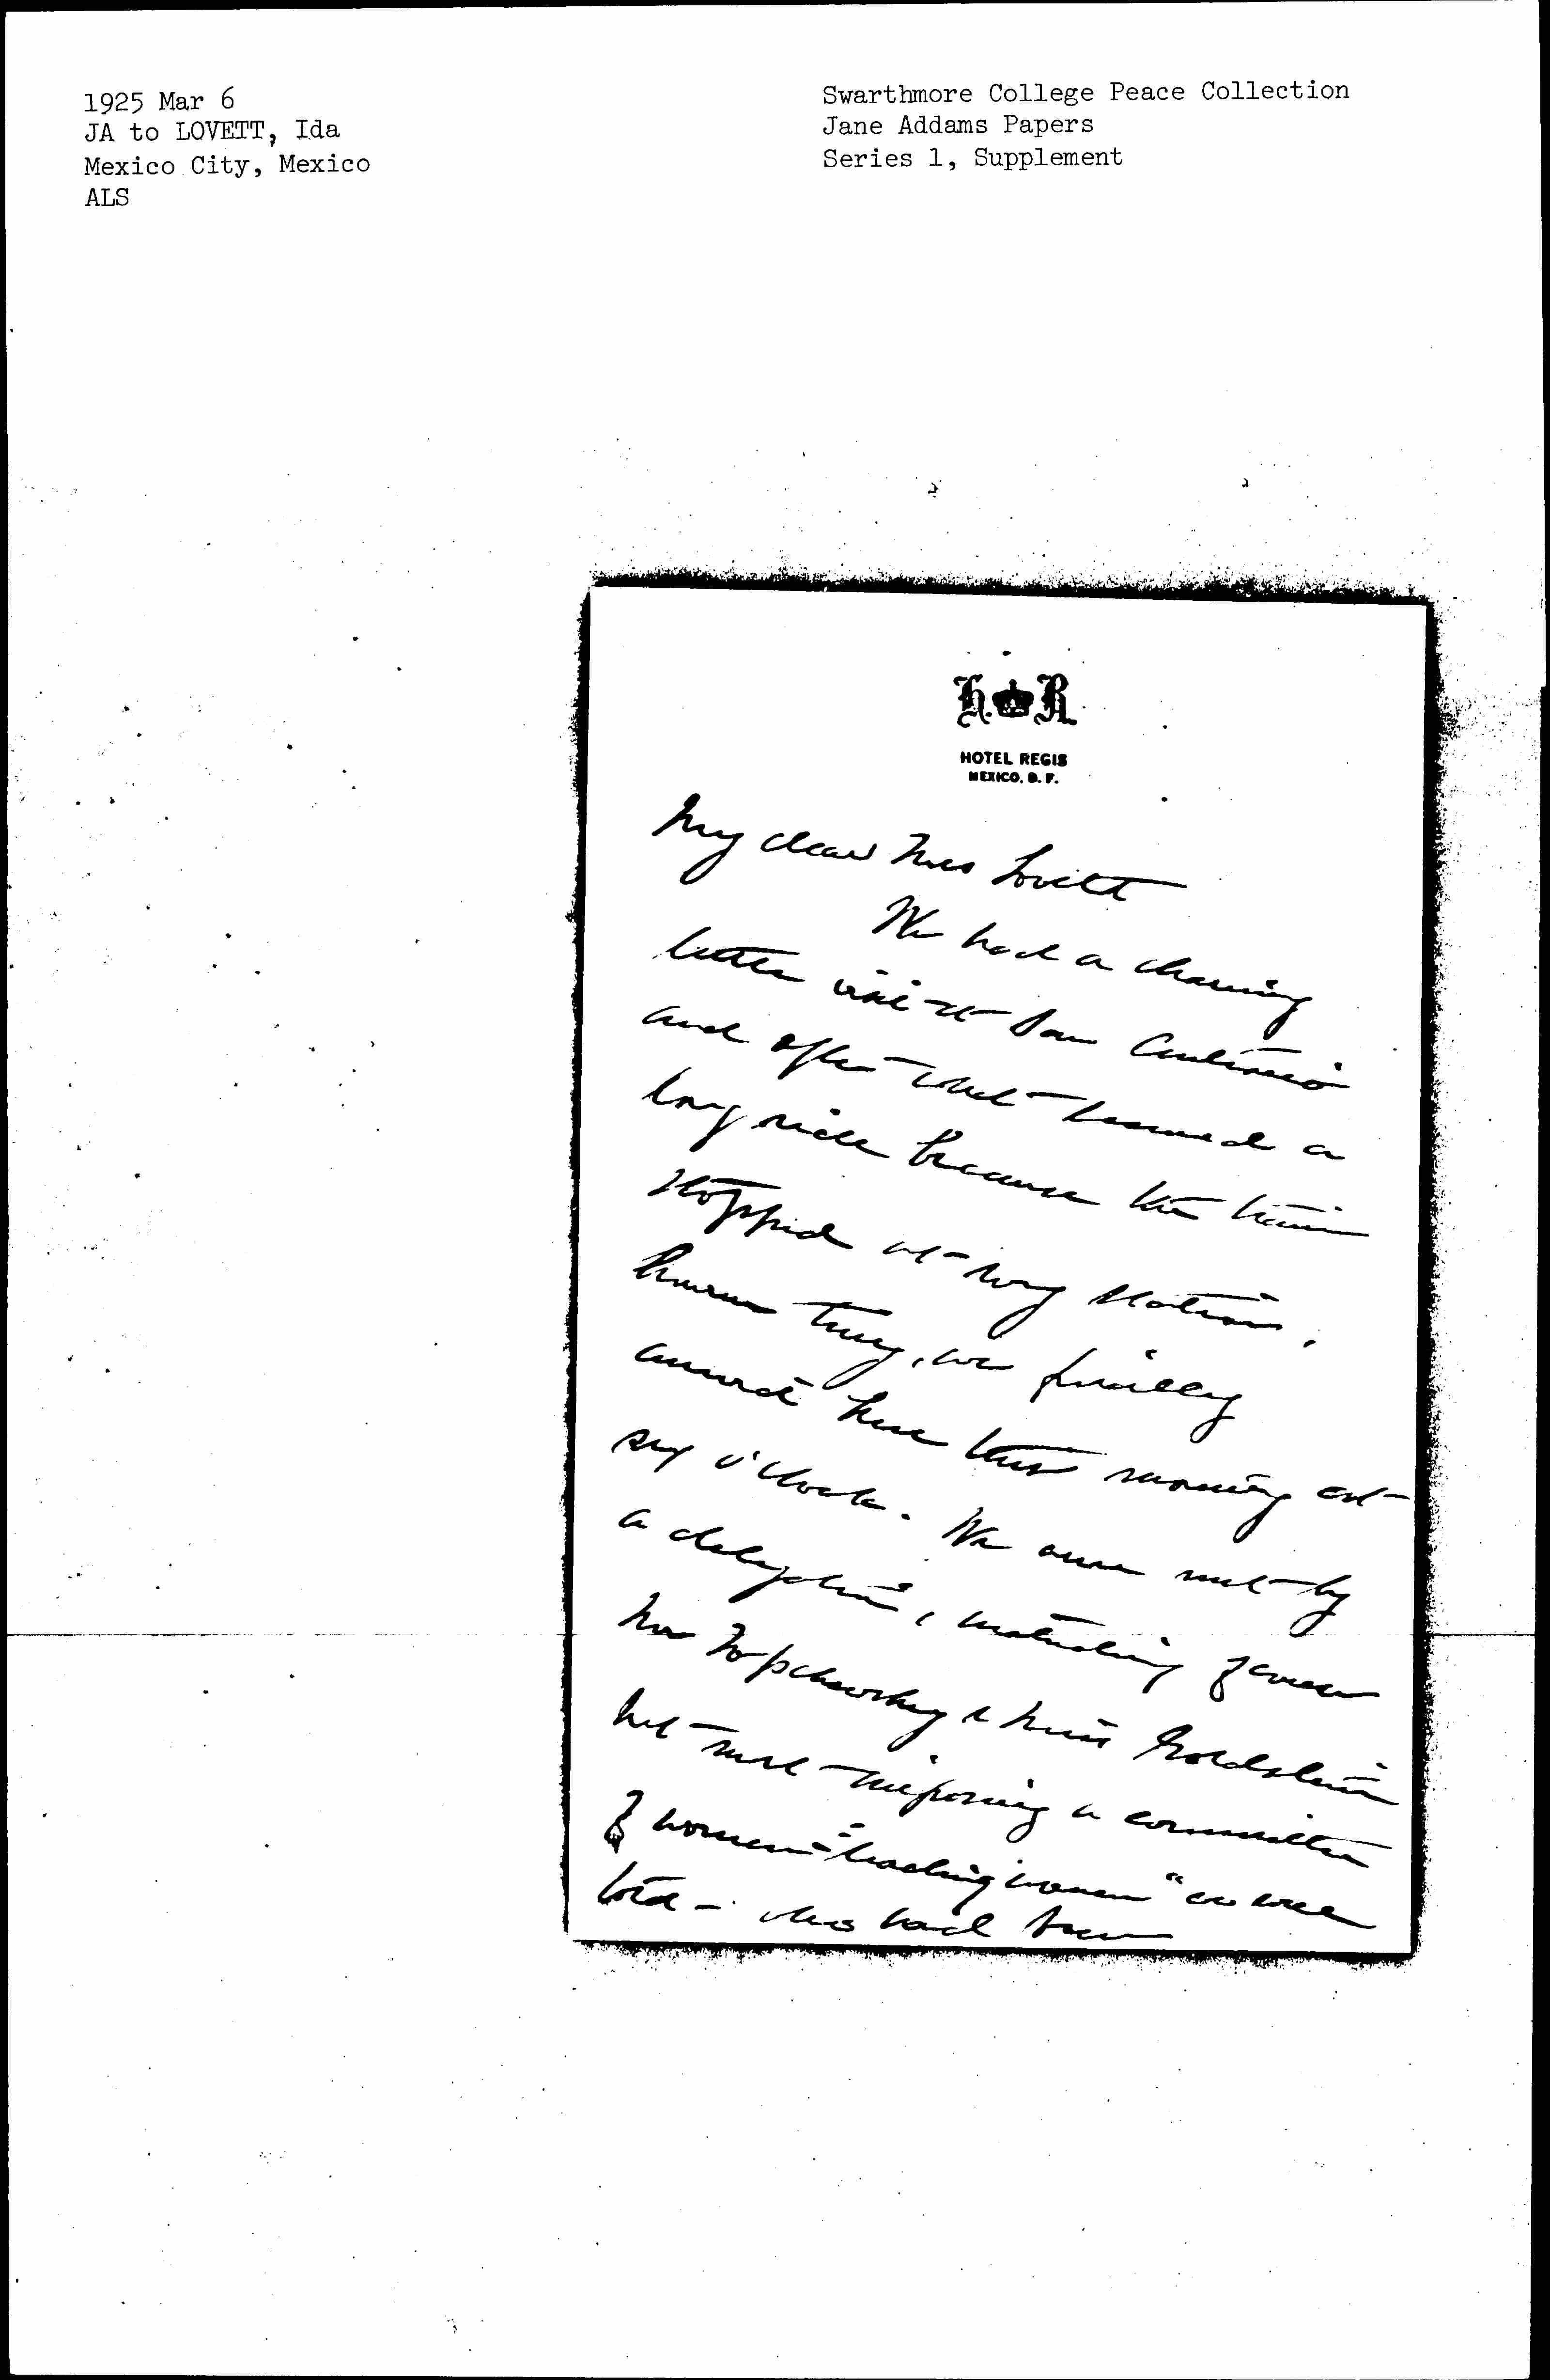 1925 Mar 6
JA to LOVETT, Ida
Mexico City, Mexico
ALS
Swarthmore College Peace Collection
Jane Addams Papers
Series 1, Supplement
H R
HOTEL REGIS
MEXICO, D. F.
My dear Mrs Lovett
We had a charming
little visit San Antonio
and after what seemed a
long ride because the train
stopped at stations.
we finally
arrived here this morning at
six o'clock. We were met by
a delegation, including
& Miss Goldstein
but most imposing a committee
of women - "leading women" we were
told - who had been